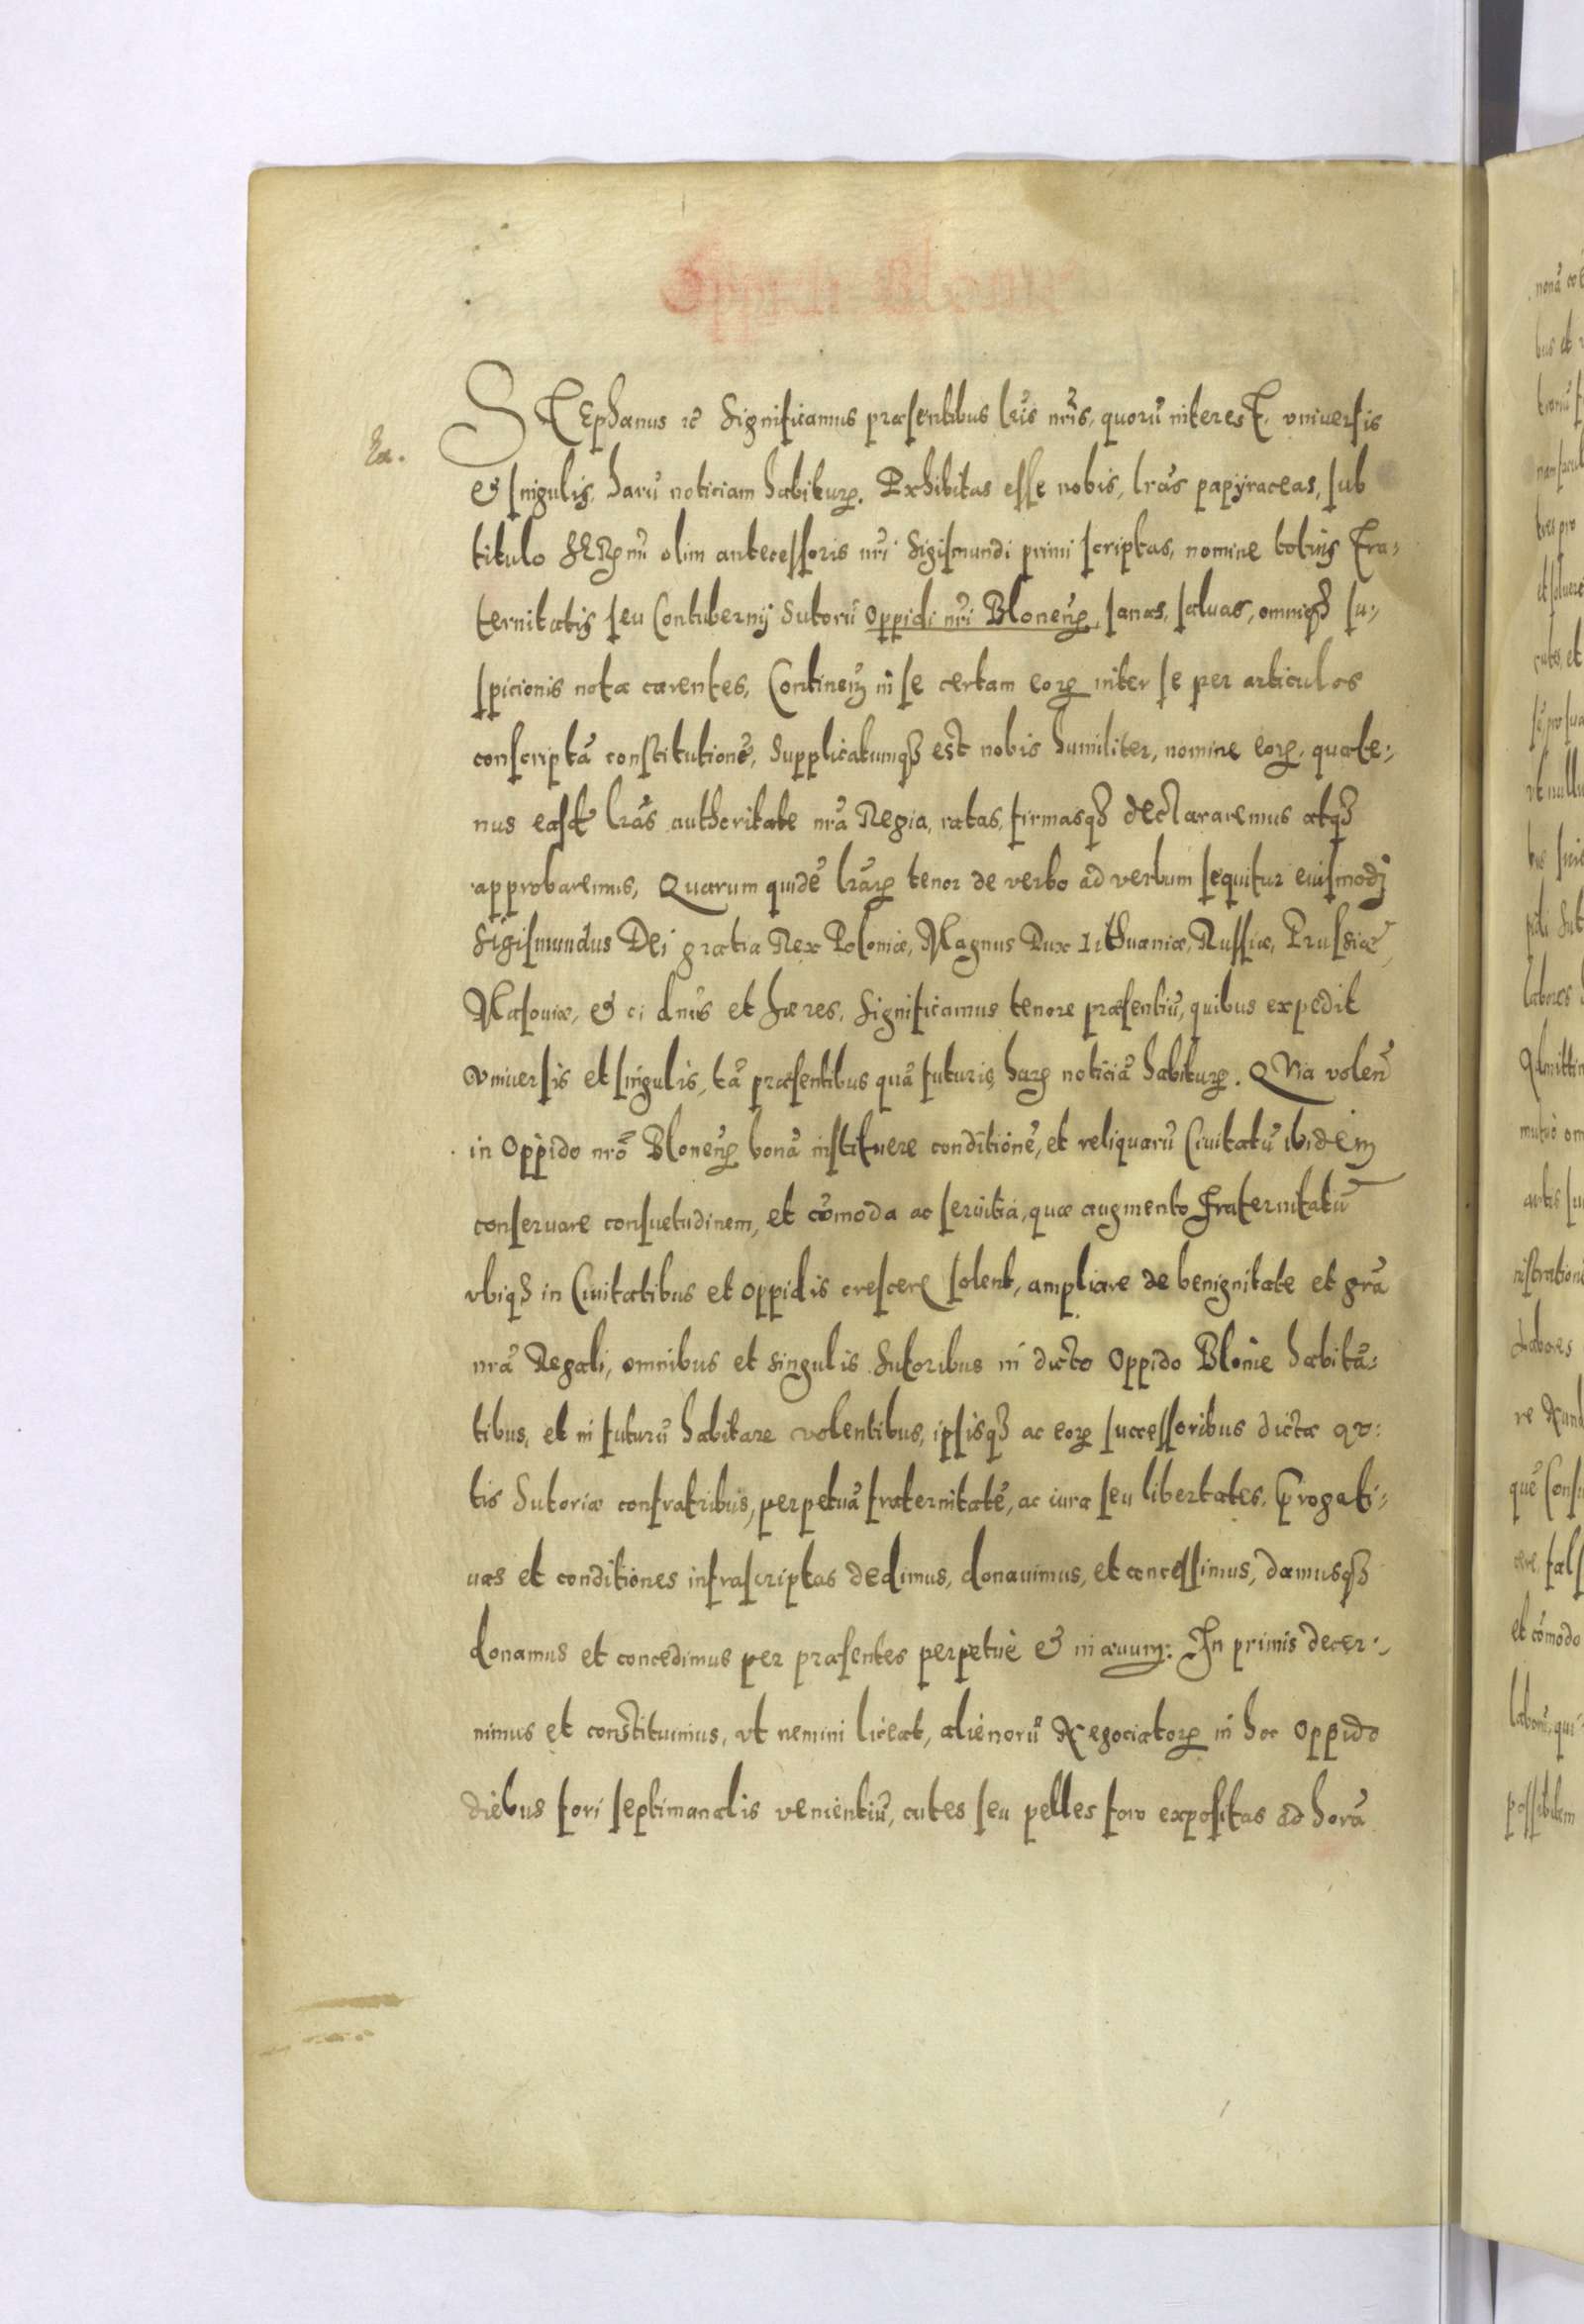 Oppidi Blonie
STEphanus etc Significamus præsentibus lr̃is nr̃is, quorũ interesT. vniuersis
Ex.
& singulis, harũ noticiam habiturꝝ. Exhibitas esse nobis, lrãs papÿraceas, sub
titulo SERꝝmi olim antecessoris nr̃i Sigismundi primi scriptas, nomine totius Fra-
ternitatis seu Contubernij Sutorũ Oppidi nr̃i Blonen̄ꝝ, sanas, saluas, omniqꝫ su-
spicionis nota carentes, Continen̄ in se certam eorꝝ inter se per articulos
conscriptã constitutionẽ, Supplicatumqꝫ est nobis humiliter, nomine eorꝝ, quate-
nus easdẽ lrãs authoritate nrã Regia, ratas, firmasqꝫ declararemus atqꝫ
approbaremus, Quarum quidẽ lrãrꝝ tenor de verbo ad verbum sequitur eiusmodj
Sigismundus Dei gratia Rex Poloniæ, Magnus Dux Lithuaniæ, Russiæ, Prussiæ,
Masouiæ, & c: dnũs et hæres, Significamus tenore præsentiũ, quibus expedit
vniuersis et singulis, tã præsentibus quã futuris, harꝝ noticiã habiturꝝ. QVia volen̄
in Oppido nrõ Blonen̄ꝝ bonã instituere conditionẽ, et reliquarũ Ciuitatũ ibidem
conseruare consuetudinem, et cõmoda ac seruitia, quæ augmento Fraternitatũ
vbiqꝫ in Ciuitatibus et Oppidis crescere solent, ampliare de benignitate et grã
nrã Regali, omnibus et singulis Sutoribus in dicto Oppido Blonie habitã-
tibus, et in futurũ habitare volentibus, ipsisqꝫ ac eorꝝ successoribus dictæ ar-
tis Sutoriæ confratribus, perpetuã fraternitatẽ, ac iura seu libertates, ꝑrogati-
uas et conditiones infrascriptas dedimus, donauimus, et concessimus, damusqꝫ
donamus et concedimus per præsentes perpetuè & in æuum: In primis decer-
nimus et constituimus, vt nemini liceat, alienorũ Negociatorꝝ in hoc Oppido
diebus fori septimanalis venientiũ, cutes seu pelles foro expositas ad horã